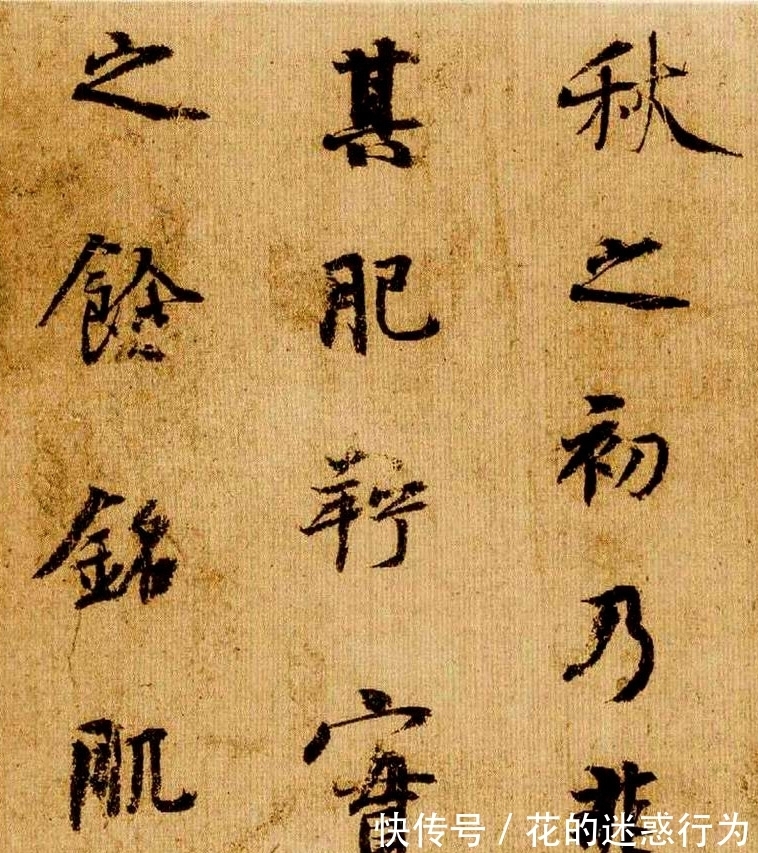 秋之初乃韭
其肥羜實
之餘銘肌
快传号 / 花的迷惑行为